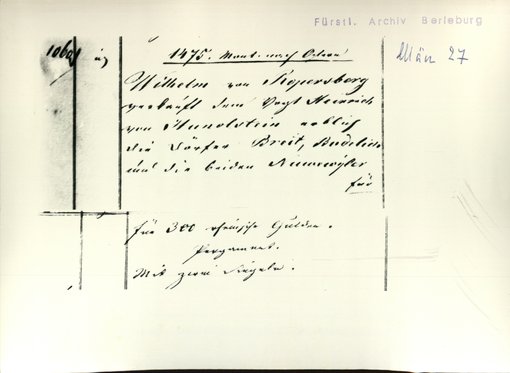 Fürstl. Archiv Berleburg
März 27
1475. Mont. nach Ostern
Wilhelm von
verkauft dem Vogt Heinrich
von Hunolstein erblich
die Dörfer Breit, Budelich
und die beiden
für
für 300 rheinische Gulden.
Pergament.
Mit zwei Siegeln.